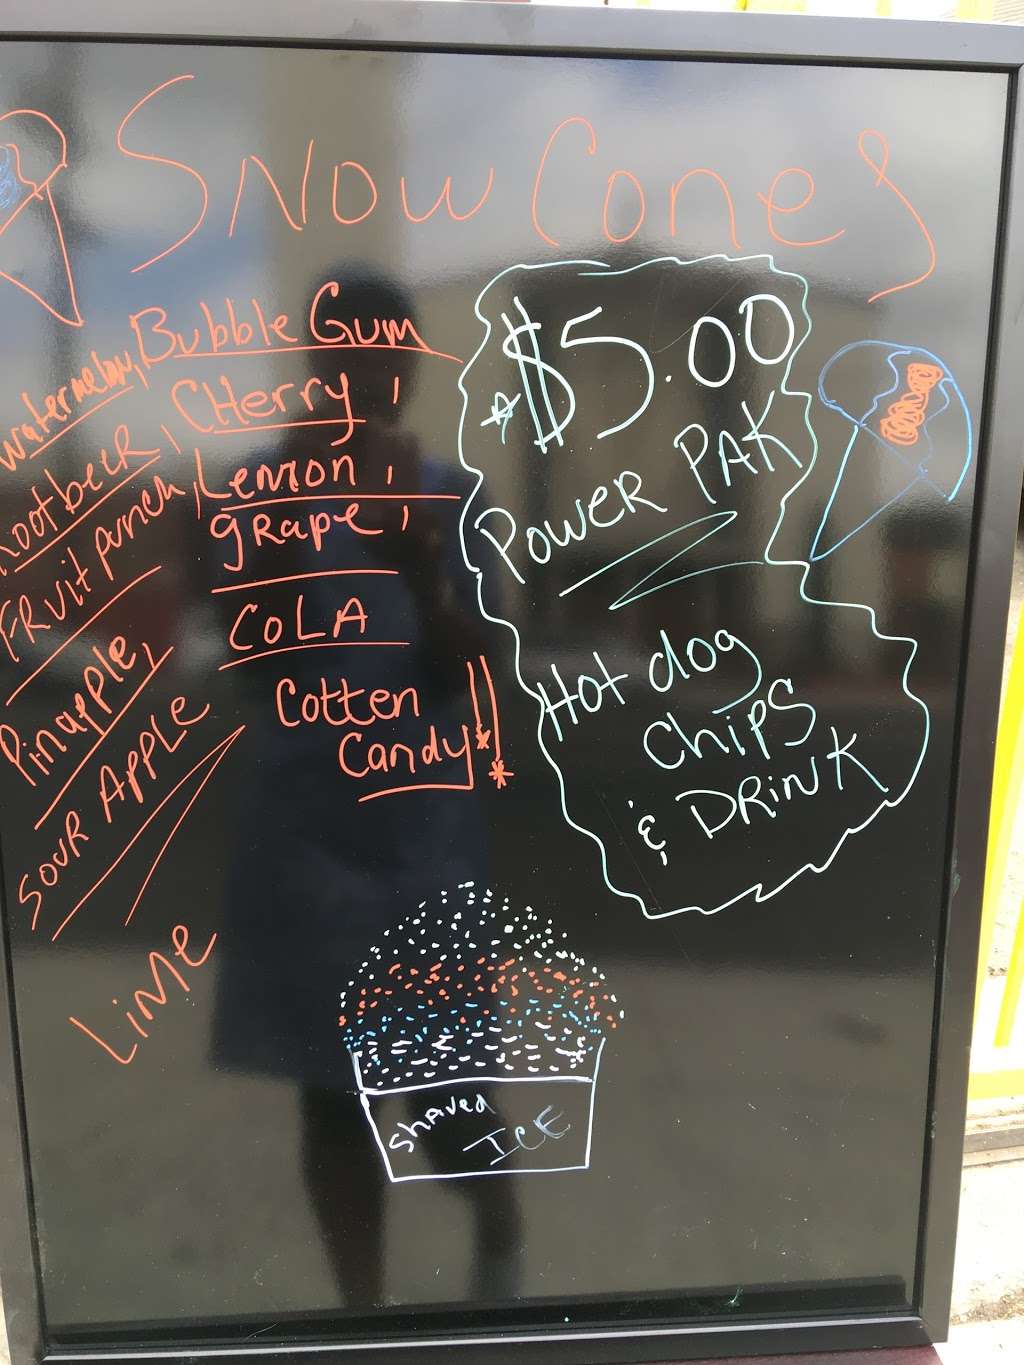 Snow Cones
Watermelon,
Bubble Gum
Rootbeer,
CHerry,
Fruit punch,
Lemon,
grape,
Pinapple,
CoLA
SOUR APPLE
Cotten
Candy!!
LiMe
$5.00
Power PAK
Hot dog
CHiPS
& DRiNK
Shaved
ICE